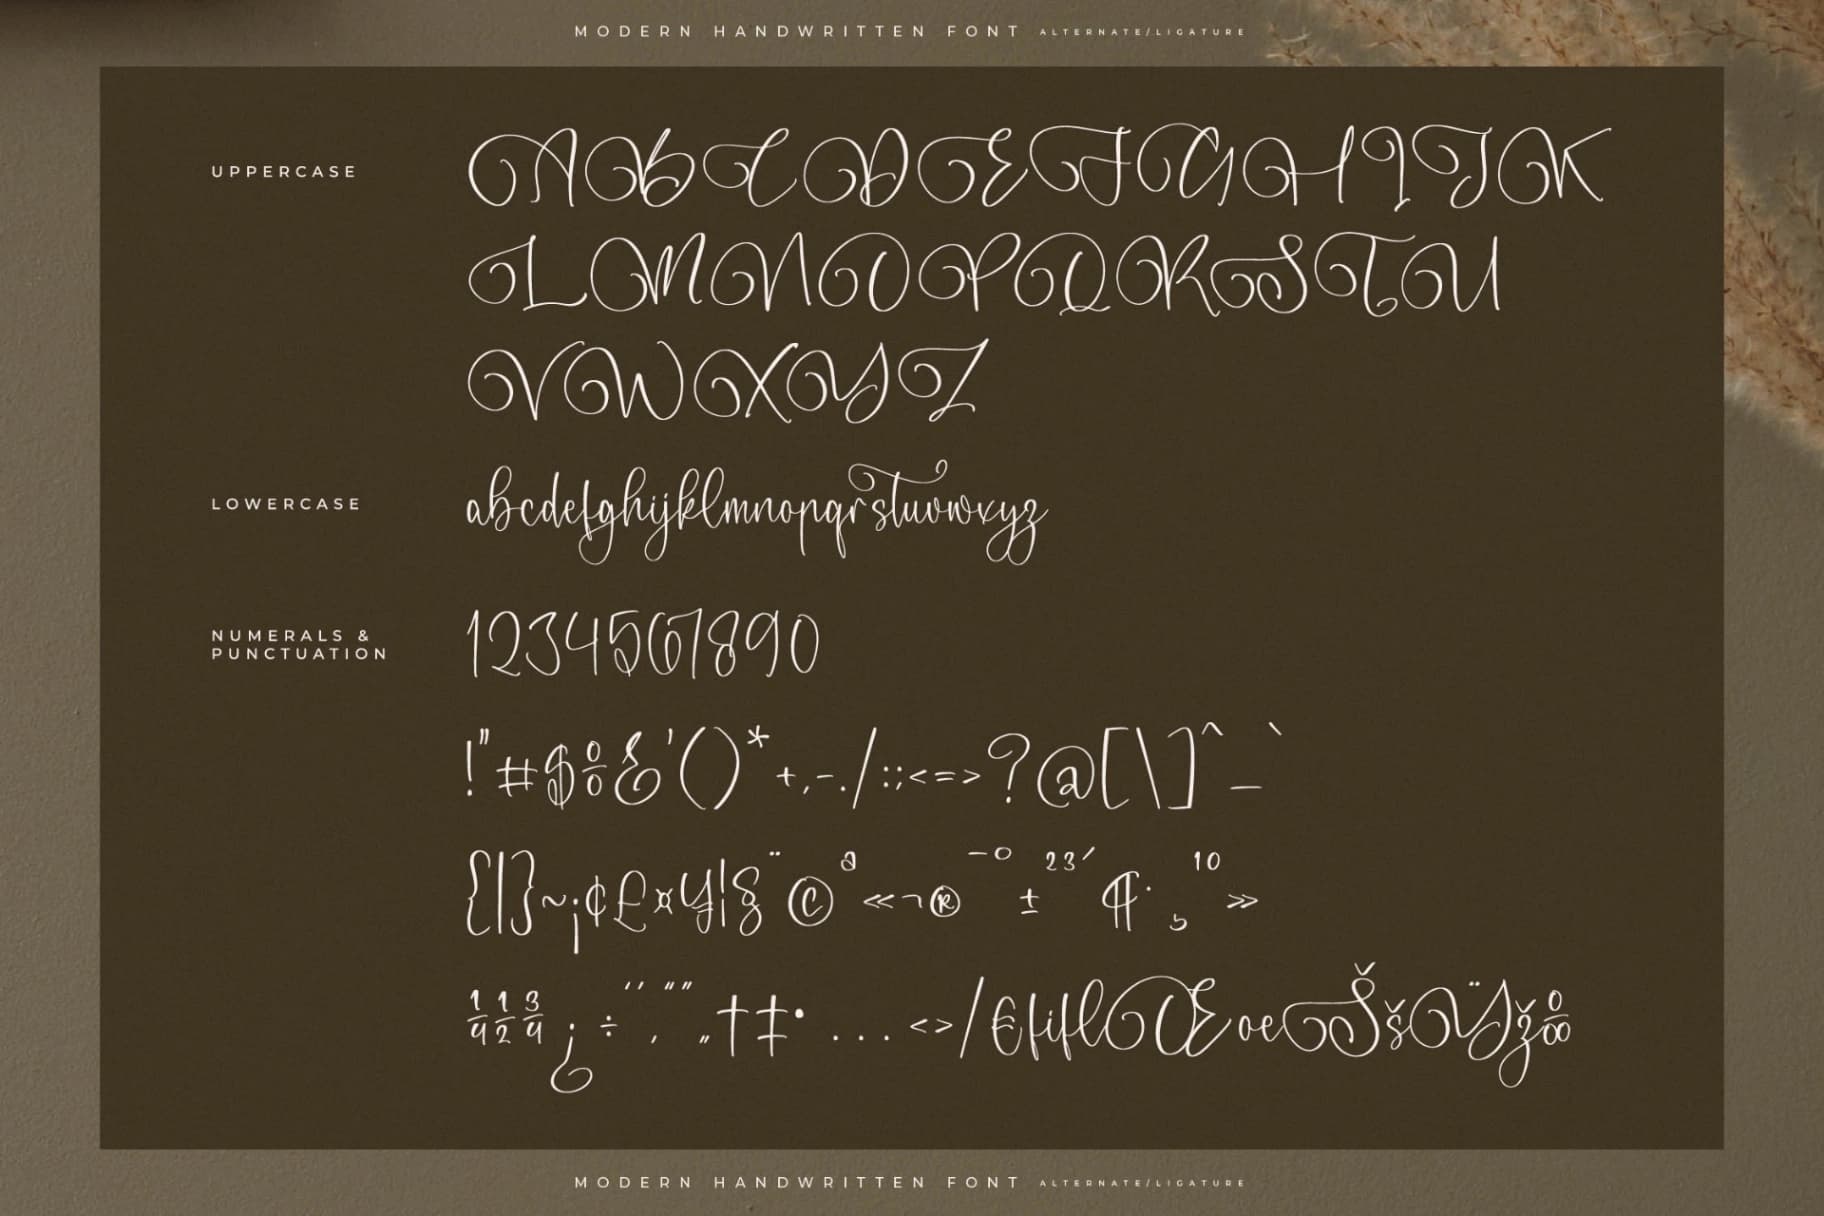 MODERN HANDWRITTEN FONT ALTERNATE/LIGATURE
UPPERCASE
ABCDEFGHIJK
LMNOPQRSTU
VWXYZ
LOWERCASE
abcdefghijklmnopqrstuvwxyz
NUMERALS &
PUNCTUATION
1234567890
!"#$%&'()*+,-./:;<=>?@[\]^_`
{|}~¡¢£¤¥¦§¨©ª«¬®¯°±²³´¶·¸¹º»
¼½¾¿÷‘’‚“”„†‡•...‹›/€fiflŒœŠšŸž‰
MODERN HANDWRITTEN FONT ALTERNATE/LIGATURE